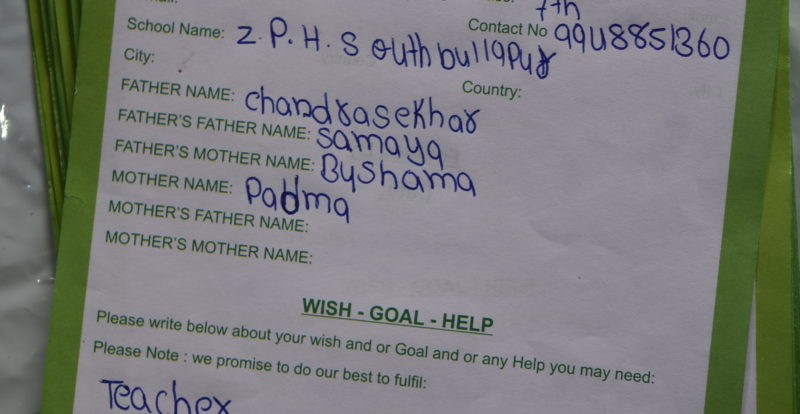 7th
School Name: Z.P.H.S outh bullapur
Contact No 9948851360
City:
Country:
FATHER NAME: Chandrasekhar
FATHER'S FATHER NAME: Samaya
FATHER'S MOTHER NAME: Byshama
MOTHER NAME: Padma
MOTHER'S FATHER NAME:
MOTHER'S MOTHER NAME:
WISH - GOAL - HELP
Please write below about your wish and or Goal and or any Help you may need:
Please Note : we promise to do our best to fulfil:
Teacher